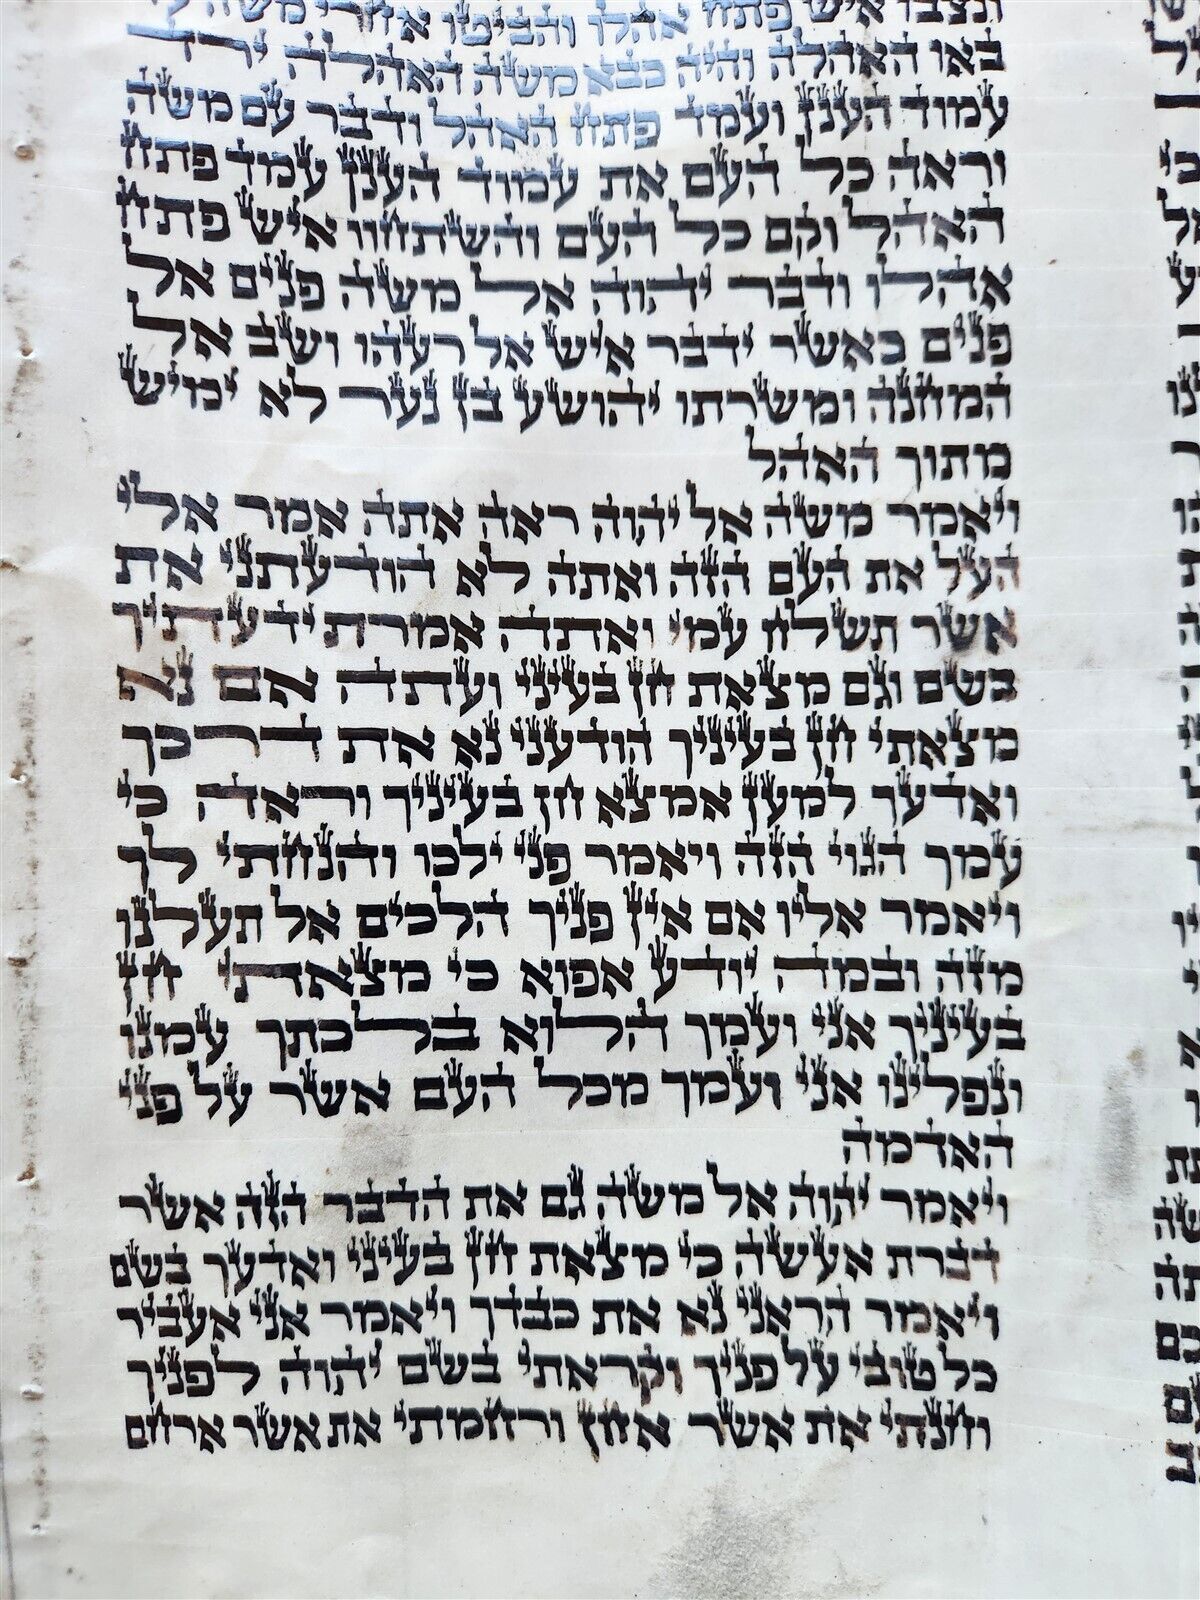 ונצבו איש פתח אהלו והביטו אחרי משה עד
באו האהלה והיה כבא משה האהלה ירד
עמוד הענן ועמד פתח האהל ודבר עם משה
וראה כל העם את עמוד הענן עמד פתח
האהל וקם כל העם והשתחוו איש פתח
אהלו ודבר יהוה אל משה פנים אל
פנים כאשר ידבר איש אל רעהו ושב אל
המחנה ומשרתו יהושע בן נער לא ימיש
מתוך האהל
ויאמר משה אל יהוה ראה אתה אמר אלי
העל את העם הזה ואתה לא הודעתני את
אשר תשלח עמי ואתה אמרת ידעתיך
בשם וגם מצאת חן בעיני ועתה אם נא
מצאתי חן בעיניך הודעני נא את דרכך
ואדעך למען אמצא חן בעיניך וראה כי
עמך הגוי הזה ויאמר פני ילכו והנחתי לך
ויאמר אליו אם אין פניך הלכים אל תעלנו
מזה ובמה יודע אפוא כי מצאתי חן
בעיניך אני ועמך הלוא בלכתך עמנו
ונפלינו אני ועמך מכל העם אשר על פני
האדמה
ויאמר יהוה אל משה גם את הדבר הזה אשר
דברת אעשה כי מצאת חן בעיני ואדעך בשם
ויאמר הראני נא את כבדך ויאמר אני אעביר
כל טובי על פניך וקראתי בשם יהוה לפניך
וחנתי את אשר אחן ורחמתי את אשר ארחם